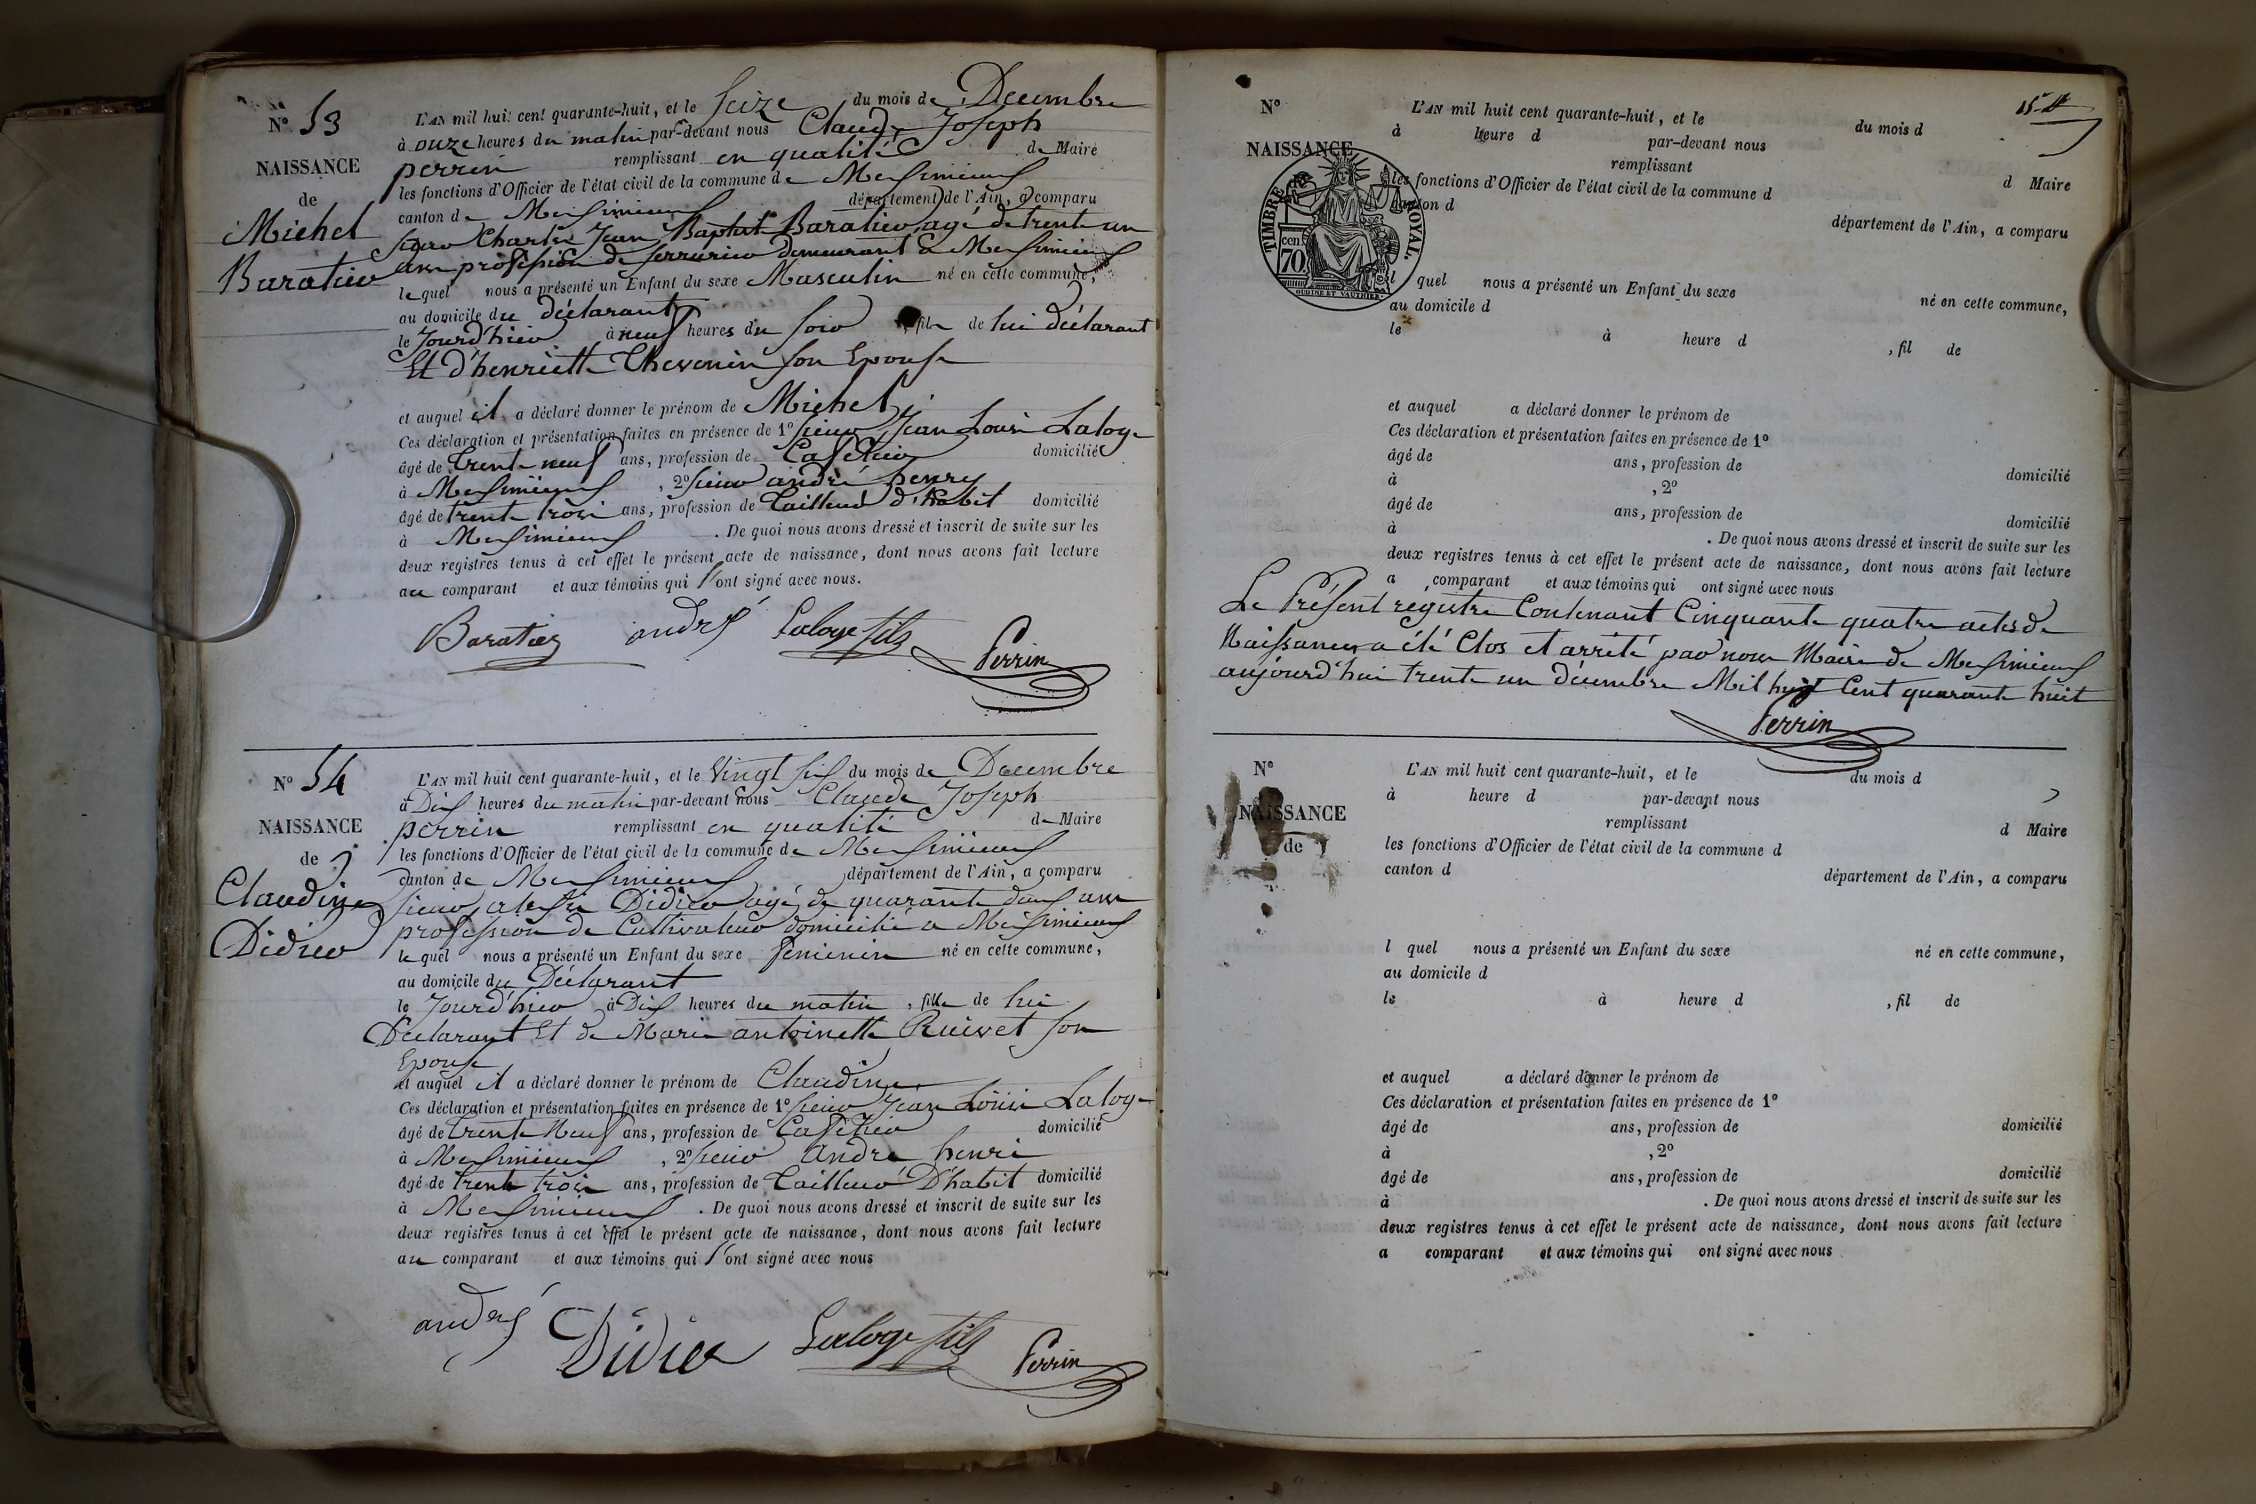 N° 53
NAISSANCE
de
Michel
Baratier
L'AN mil huit cent quarante-huit, et le Seize du mois de Decembre
à onze heures du matin par-devant nous Claude Joseph
perrin remplissant en qualité de Maire
les fonctions d'Officier de l'état civil de la commune de Meximieux
canton de Meximieux département de l'Ain, a comparu
sieur Charles Jean Baptiste Baratier, agé de trente un
ans profession de serrurier demeurant à Meximieux
lequel nous a présenté un Enfant du sexe Masculin né en cette commune,
au domicile du déclarant
le Jourd'hier à neuf heures du soir, fils de lui déclarant
Et d'henriette Thevenin son Epouse
et auquel il a déclaré donner le prénom de Michel
Ces déclaration et présentation faites en présence de 1° sieur Jean Louis Laloge
âgé de trente neuf ans, profession de Cafetier domicilié
à Meximieux, 2° sieur andré henry
âgé de trente trois ans, profession de Tailleur d'habit domicilié
à Meximieux. De quoi nous avons dressé et inscrit de suite sur les
deux registres tenus à cet effet le présent acte de naissance, dont nous avons fait lecture
au comparant et aux témoins qui l'ont signé avec nous.
Baratier andré Laloge fils Perrin
N° 54
NAISSANCE
de
Claudine
Didier
L'AN mil huit cent quarante-huit, et le Vingt six du mois de Decembre
à Dix heures du matin par-devant nous Claude Joseph
perrin remplissant en qualité de Maire
les fonctions d'Officier de l'état civil de la commune de Meximieux
canton de Meximieux département de l'Ain, a comparu
sieur Didier agé de quarante deux ans
profession de Cultivateur domicilié a Meximieux
lequel nous a présenté un Enfant du sexe feminin né en cette commune,
au domicile du Déclarant
le Jourd'hier à Dix heures du matin, fille de lui
Déclarant Et de Marie antoinette Ruivet son
Epouse
et auquel il a déclaré donner le prénom de Claudine
Ces déclaration et présentation faites en présence de 1° sieur Jean Louis Laloge
âgé de trente Neuf ans, profession de Cafetier domicilié
à Meximieux, 2° sieur andré henri
âgé de trente trois ans, profession de Tailleur D'habit domicilié
à Meximieux. De quoi nous avons dressé et inscrit de suite sur les
deux registres tenus à cet effet le présent acte de naissance, dont nous avons fait lecture
au comparant et aux témoins qui l'ont signé avec nous
andré Didier Laloge fils Perrin
N°
NAISSANCE
TIMBRE ROYAL.
cen
70.
L'AN mil huit cent quarante-huit, et le du mois d
à heure d par-devant nous
remplissant d Maire
les fonctions d'Officier de l'état civil de la commune d
canton d département de l'Ain, a comparu
l quel nous a présenté un Enfant du sexe né en cette commune,
au domicile d
le à heure d, fil de
et auquel a déclaré donner le prénom de
Ces déclaration et présentation faites en présence de 1°
âgé de ans, profession de domicilié
à, 2°
âgé de ans, profession de domicilié
à. De quoi nous avons dressé et inscrit de suite sur les
deux registres tenus à cet effet le présent acte de naissance, dont nous avons fait lecture
a comparant et aux témoins qui ont signé avec nous
Le Présent régistre Contenant Cinquante quatre actes de
Naissances a été Clos et arrêté par nous Maire de Meximieux
aujourd'hui trente un décembre Mil huit Cent quarante huit
Perrin
N°
NAISSANCE
de
L'AN mil huit cent quarante-huit, et le du mois d
à heure d par-devant nous
remplissant d Maire
les fonctions d'Officier de l'état civil de la commune d
canton d département de l'Ain, a comparu
l quel nous a présenté un Enfant du sexe né en cette commune,
au domicile d
le à heure d, fil de
et auquel a déclaré donner le prénom de
Ces déclaration et présentation faites en présence de 1°
âgé de ans, profession de domicilié
à, 2°
âgé de ans, profession de domicilié
à. De quoi nous avons dressé et inscrit de suite sur les
deux registres tenus à cet effet le présent acte de naissance, dont nous avons fait lecture
a comparant et aux témoins qui ont signé avec nous